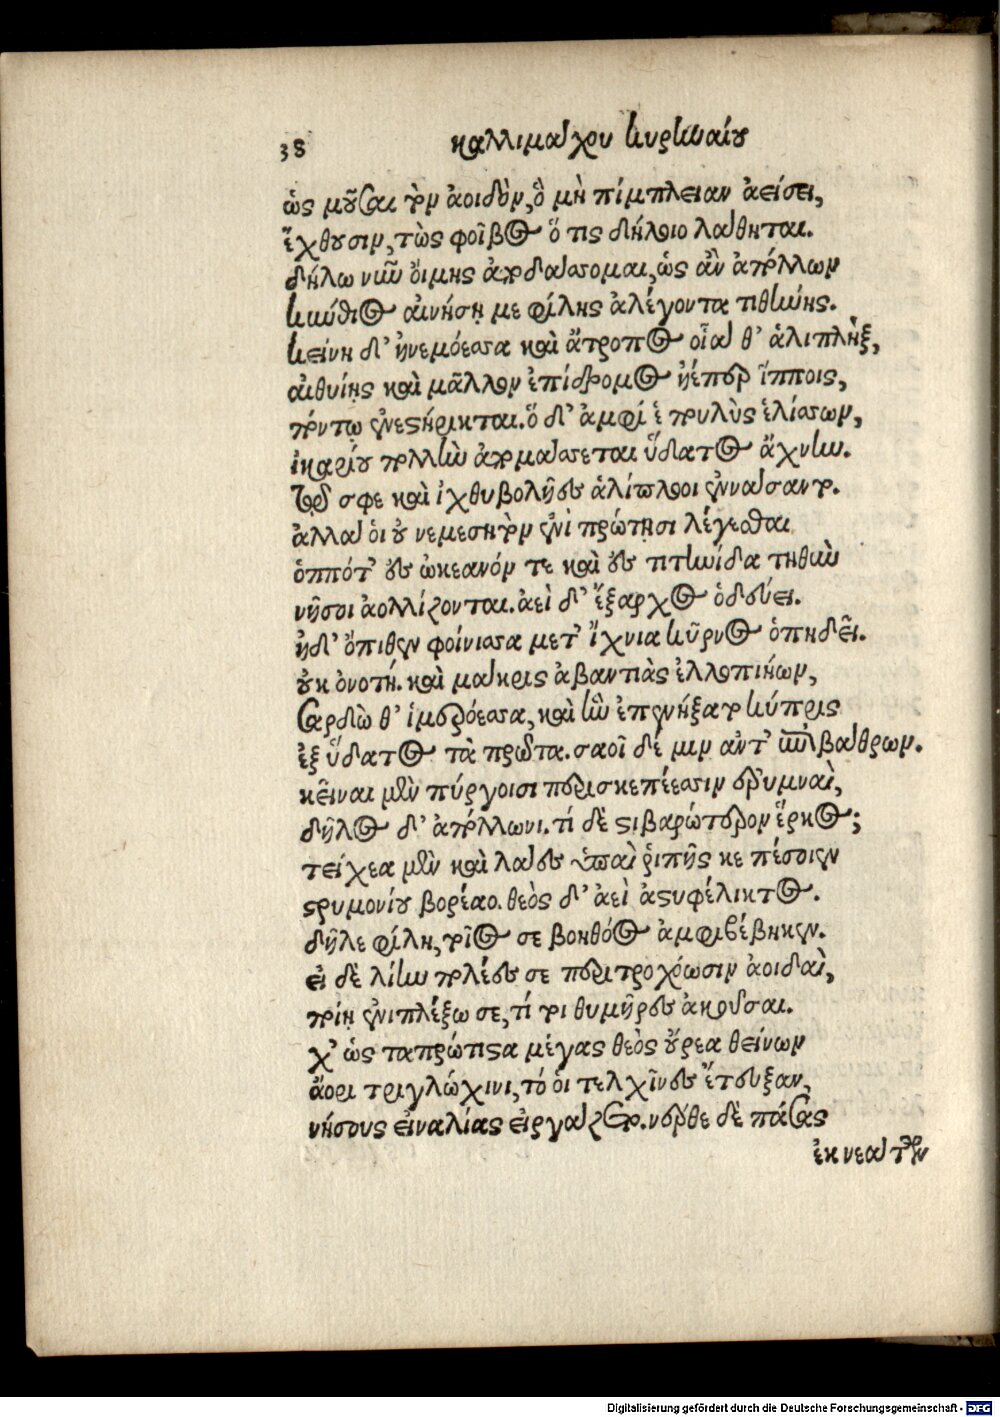 38 καλλιμάχου κυρηναίου
ὡς μοῦσαι τὸν ἀοιδὸν, ὃ μὴ πίμπλειαν ἀείσει,
ἔχθουσιν, τὼς φοῖβος ὅ τις δήλοιο λάθηται.
δήλω νῦν οἴμης ἀποδάσσομαι, ὡς ἂν ἀπόλλων
κύνθιος αἰνήσῃ με φίλης ἀλέγοντα τιθήνης.
κείνη δ' ἠνεμόεσσα καὶ ἄτροπος οἷά θ' ἁλιπλὴξ,
αἰθυίῃς καὶ μᾶλλον ἐπίδρομος ἠέπερ ἵπποις,
πόντῳ ἐνεστήρικται. ὅ δ' ἀμφί ἑ πουλὺς ἑλίσσων,
ἰκαρίου πολλὴν ἀπομάσσεται ὕδατος ἄχνην.
τῷ σφε καὶ ἰχθυβολῆες ἁλίπλοοι ἐννάσαντο.
ἀλλά οἱ οὐ νεμεσητὸν ἐνὶ πρώτῃσι λέγεσθαι
ὁππότ' ἐς ὠκεανόν τε καὶ ἐς τιτηνίδα τηθὺν
νῆσοι ἀολλίζονται. ἀεὶ δ' ἔξαρχος ὁδεύει.
ἡδ' ὄπιθεν φοίνισσα μετ' ἴχνια κῦρνος ὀπηδεῖ.
οὐκ ὀνοτή. καὶ μάκρις ἀβαντιὰς ἐλλοπιήων,
σαρδὼ θ' ἱμερόεσσα, καὶ ἣν ἐπενήξατο κύπρις
ἐξ ὕδατος τὰ πρῶτα. σαοῖ δέ μιν ἀντ' ἐπιβάθρων.
κεῖναι μὲν πύργοισι περισκεπέεσσιν ἐρυμναὶ,
δῆλος δ' ἀπόλλωνι. τί δὲ στιβαρώτερον ἕρκος;
τείχεα μὲν καὶ λᾶες ὑπαὶ ῥιπῆς κε πέσοιεν
στρυμονίου βορέαο. θεὸς δ' ἀεὶ ἀστυφέλικτος.
δῆλε φίλη, τοῖος σε βοηθόος ἀμφιβέβηκεν.
εἰ δὲ λίην πολέες σε περιτροχόωσιν ἀοιδαὶ,
ποίῃ ἐνιπλέξω σε, τί τοι θυμῆρες ἀκοῦσαι.
χ' ὡς ταπρώτιστα μέγας θεὸς οὔρεα θείνων
ἄορι τριγλώχινι, τό οἱ τελχῖνες ἔτευξαν,
νήσους εἰναλίας εἰργάζετο. νέρθε δὲ πάσας
ἐκ νεάτων
Digitalisierung gefördert durch die Deutsche Forschungsgemeinschaft - DFG